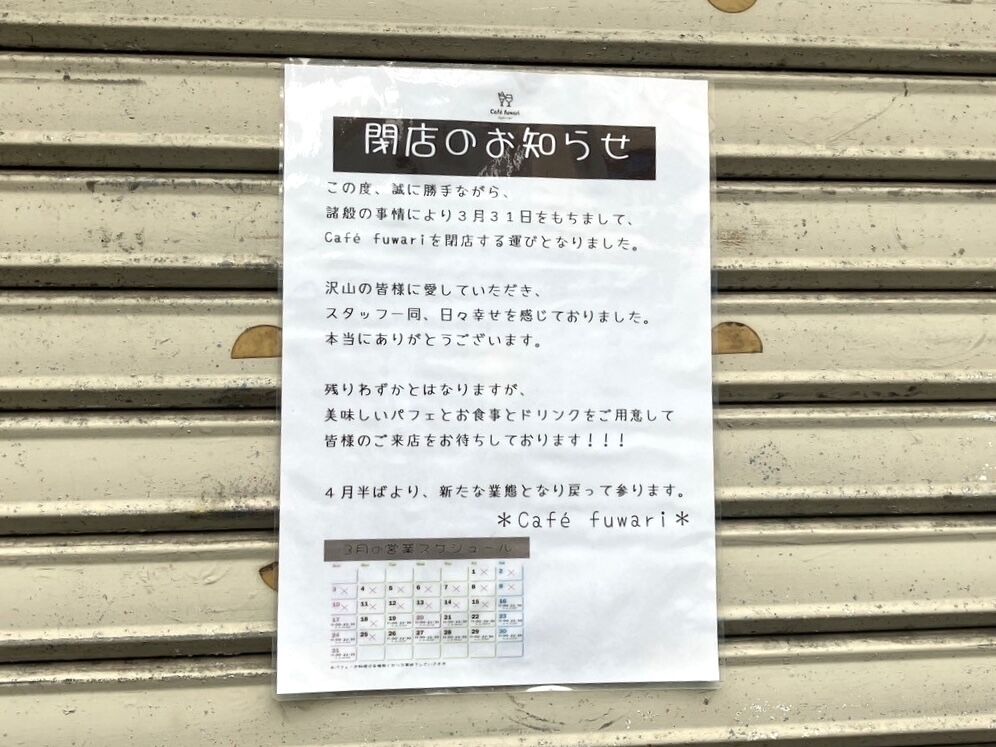 Café fuwari
閉店のお知らせ
この度、誠に勝手ながら、
諸般の事情により3月31日をもちまして、
Café fuwariを閉店する運びとなりました。
沢山の皆様に愛していただき、
スタッフ一同、日々幸せを感じておりました。
本当にありがとうございます。
残りわずかとはなりますが、
美味しいパフェとお食事とドリンクをご用意して
皆様のご来店をお待ちしております!!!
4月半ばより、新たな業態となり戻って参ります。
*Café fuwari*
3月の営業スケジュール
1 2
3 4 5 6 7 8 9
10 11 12 13 14 15 16
17 18 19 20 21 22 23
24 25 26 27 28 29 30
31